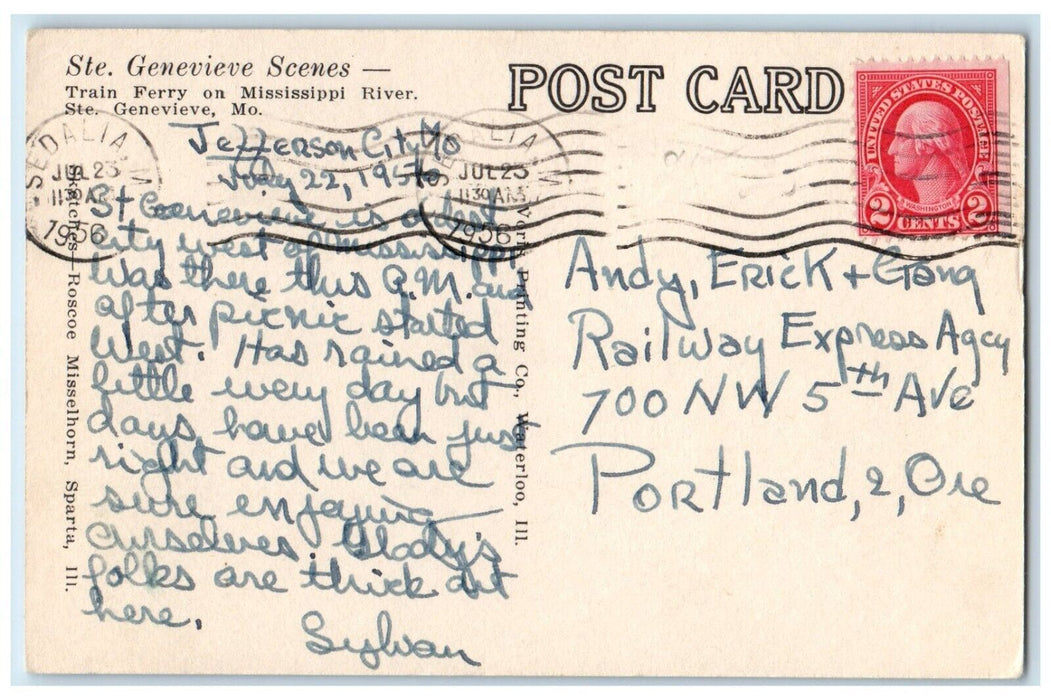 Ste. Genevieve Scenes —
Train Ferry on Mississippi River.
Ste. Genevieve, Mo.
POST CARD
UNITED STATES POSTAGE
WASHINGTON
2 CENTS 2
SEDALIA
JUL 23
11 30 AM
1956
SEDALIA
JUL 23
11 30 AM
1956
Jefferson City Mo
July 22, 1956
St Genevieve is a
city west of Mississippi
was there this A.M. and
after picnic started
West. Has rained a
little every day but
days have been just
right and we are
sure enjoying
ourselves. Glady's
folks are thick out
here.
Sylvan
Andy, Erick + Gang
Railway Express Agcy
700 NW 5th Ave
Portland, 2, Ore
Sketches—Roscoe Misselhorn, Sparta, Ill.
Printing Co., Waterloo, Ill.